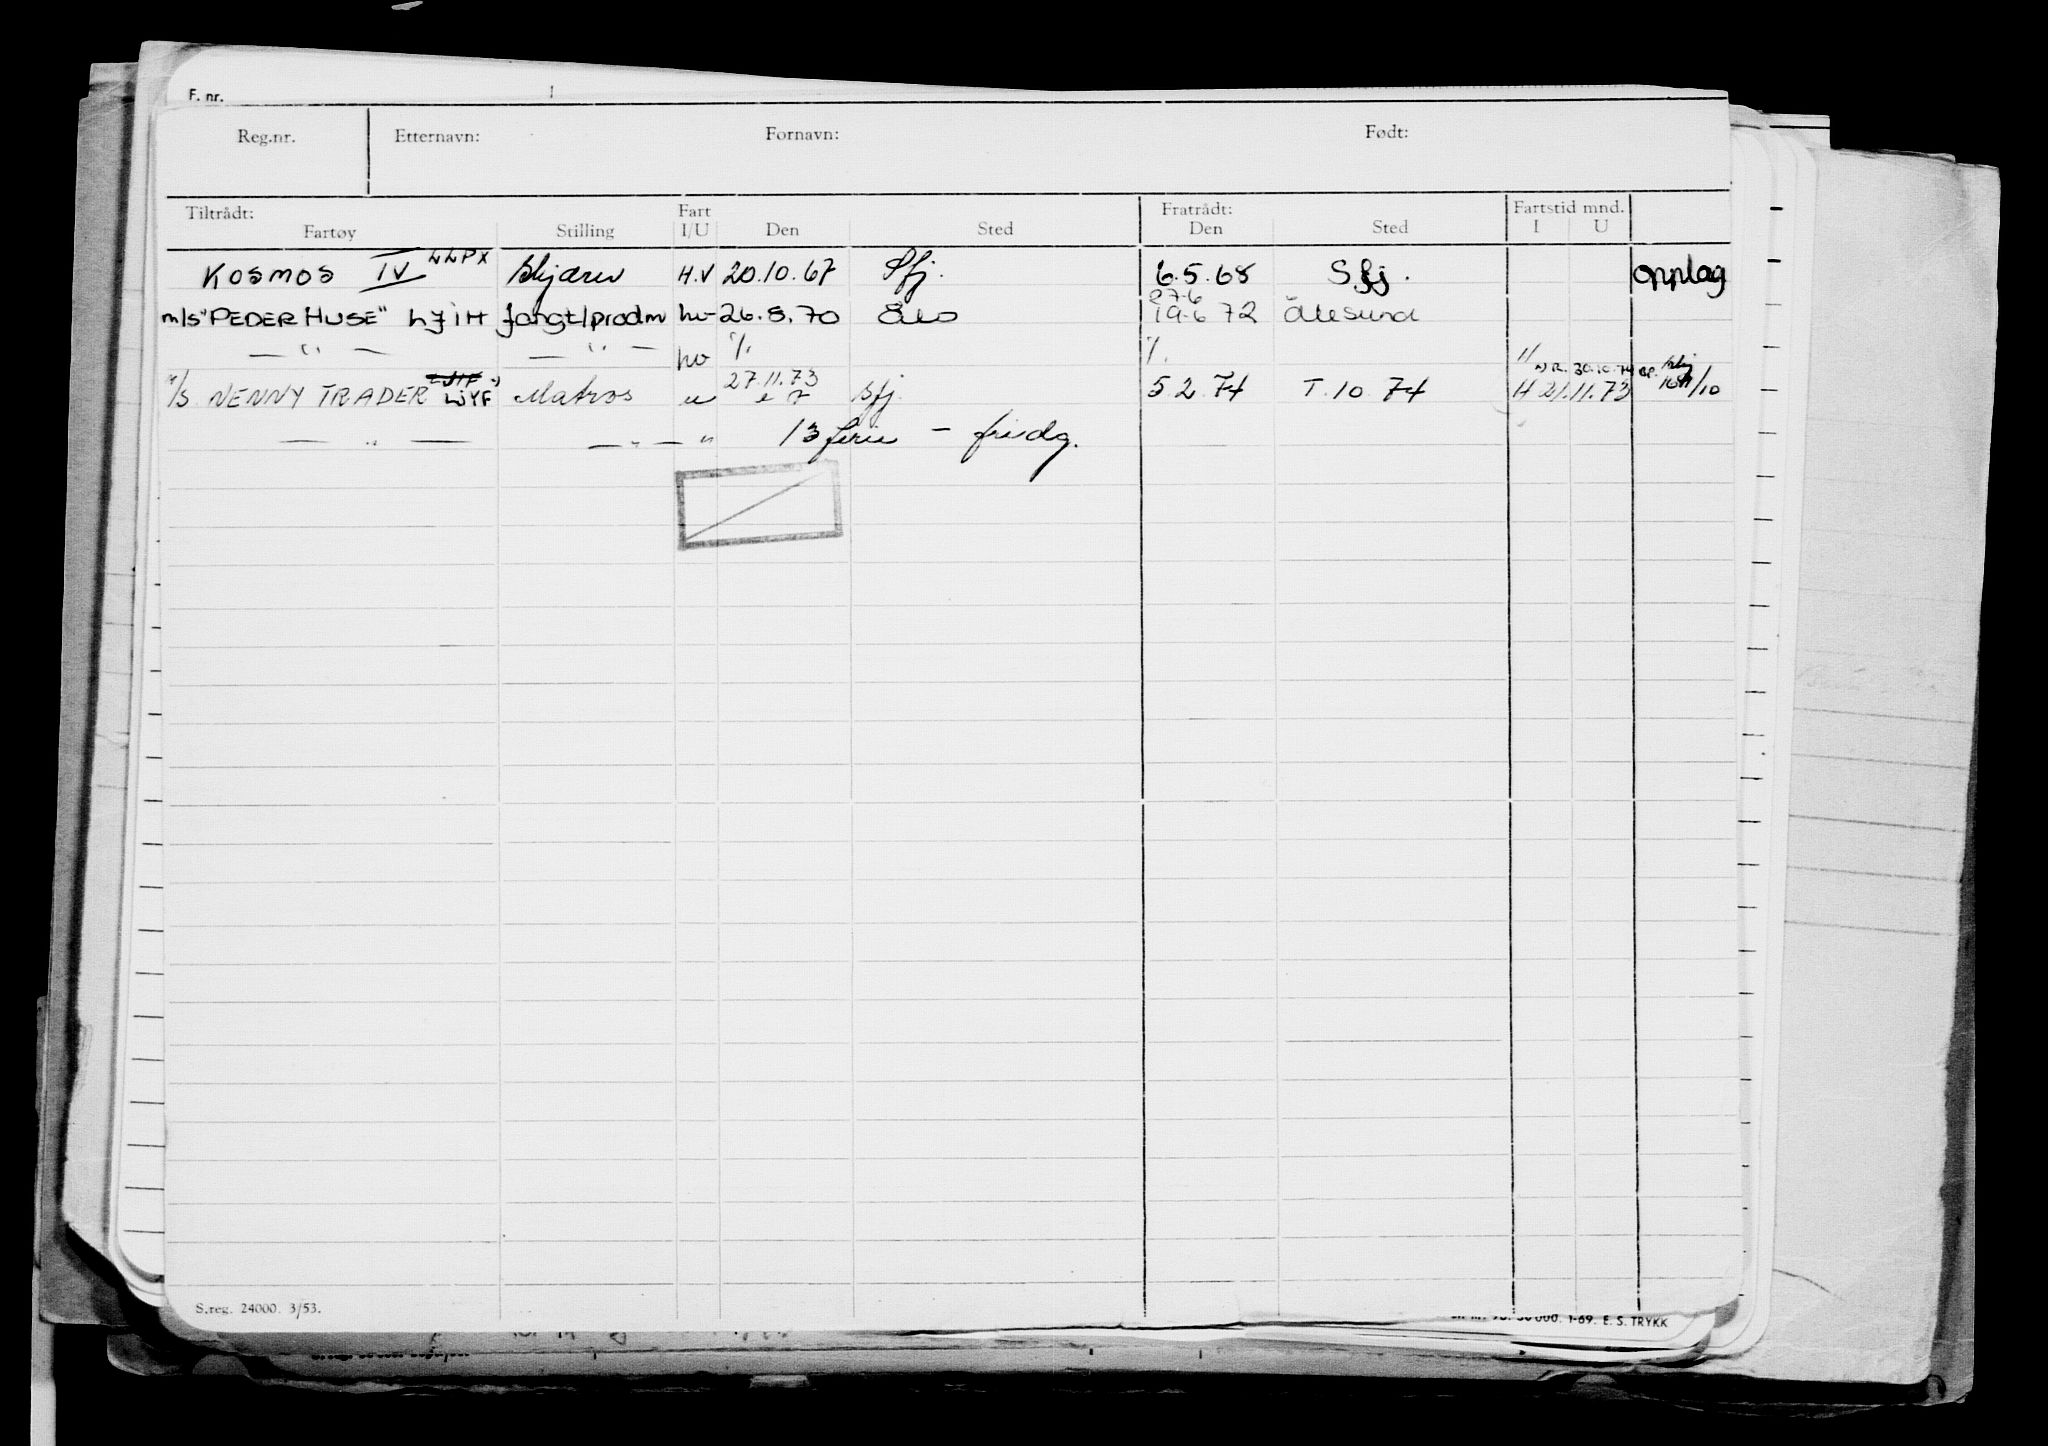 F. nr.
Reg.nr. Etternavn: Fornavn: Født:
Tiltrådt: Fart Fratrådt: Fartstid mnd.
Fartøy Stilling I/U Den Sted Den Sted I U
KOSMOS IV LLPX Skjærer H.V 20.10.67 Sfj. 6.5.68 Sfj. opplag
27-6
m/s "PEDER HUSE" LJIH fangt/prodm hv 26.8.70 19-6 72 Ålesund
— " — — " — hv
27.11.73 30.10.74
M/S NENNY TRADER LJYF Matros u Sfj. 5.2.74 T.10.74 H 21.11.73
— " — — " — " 13 ferie - fridg.
S.reg. 24000. 3/53.
000. 1-69. E. S. TRYKK